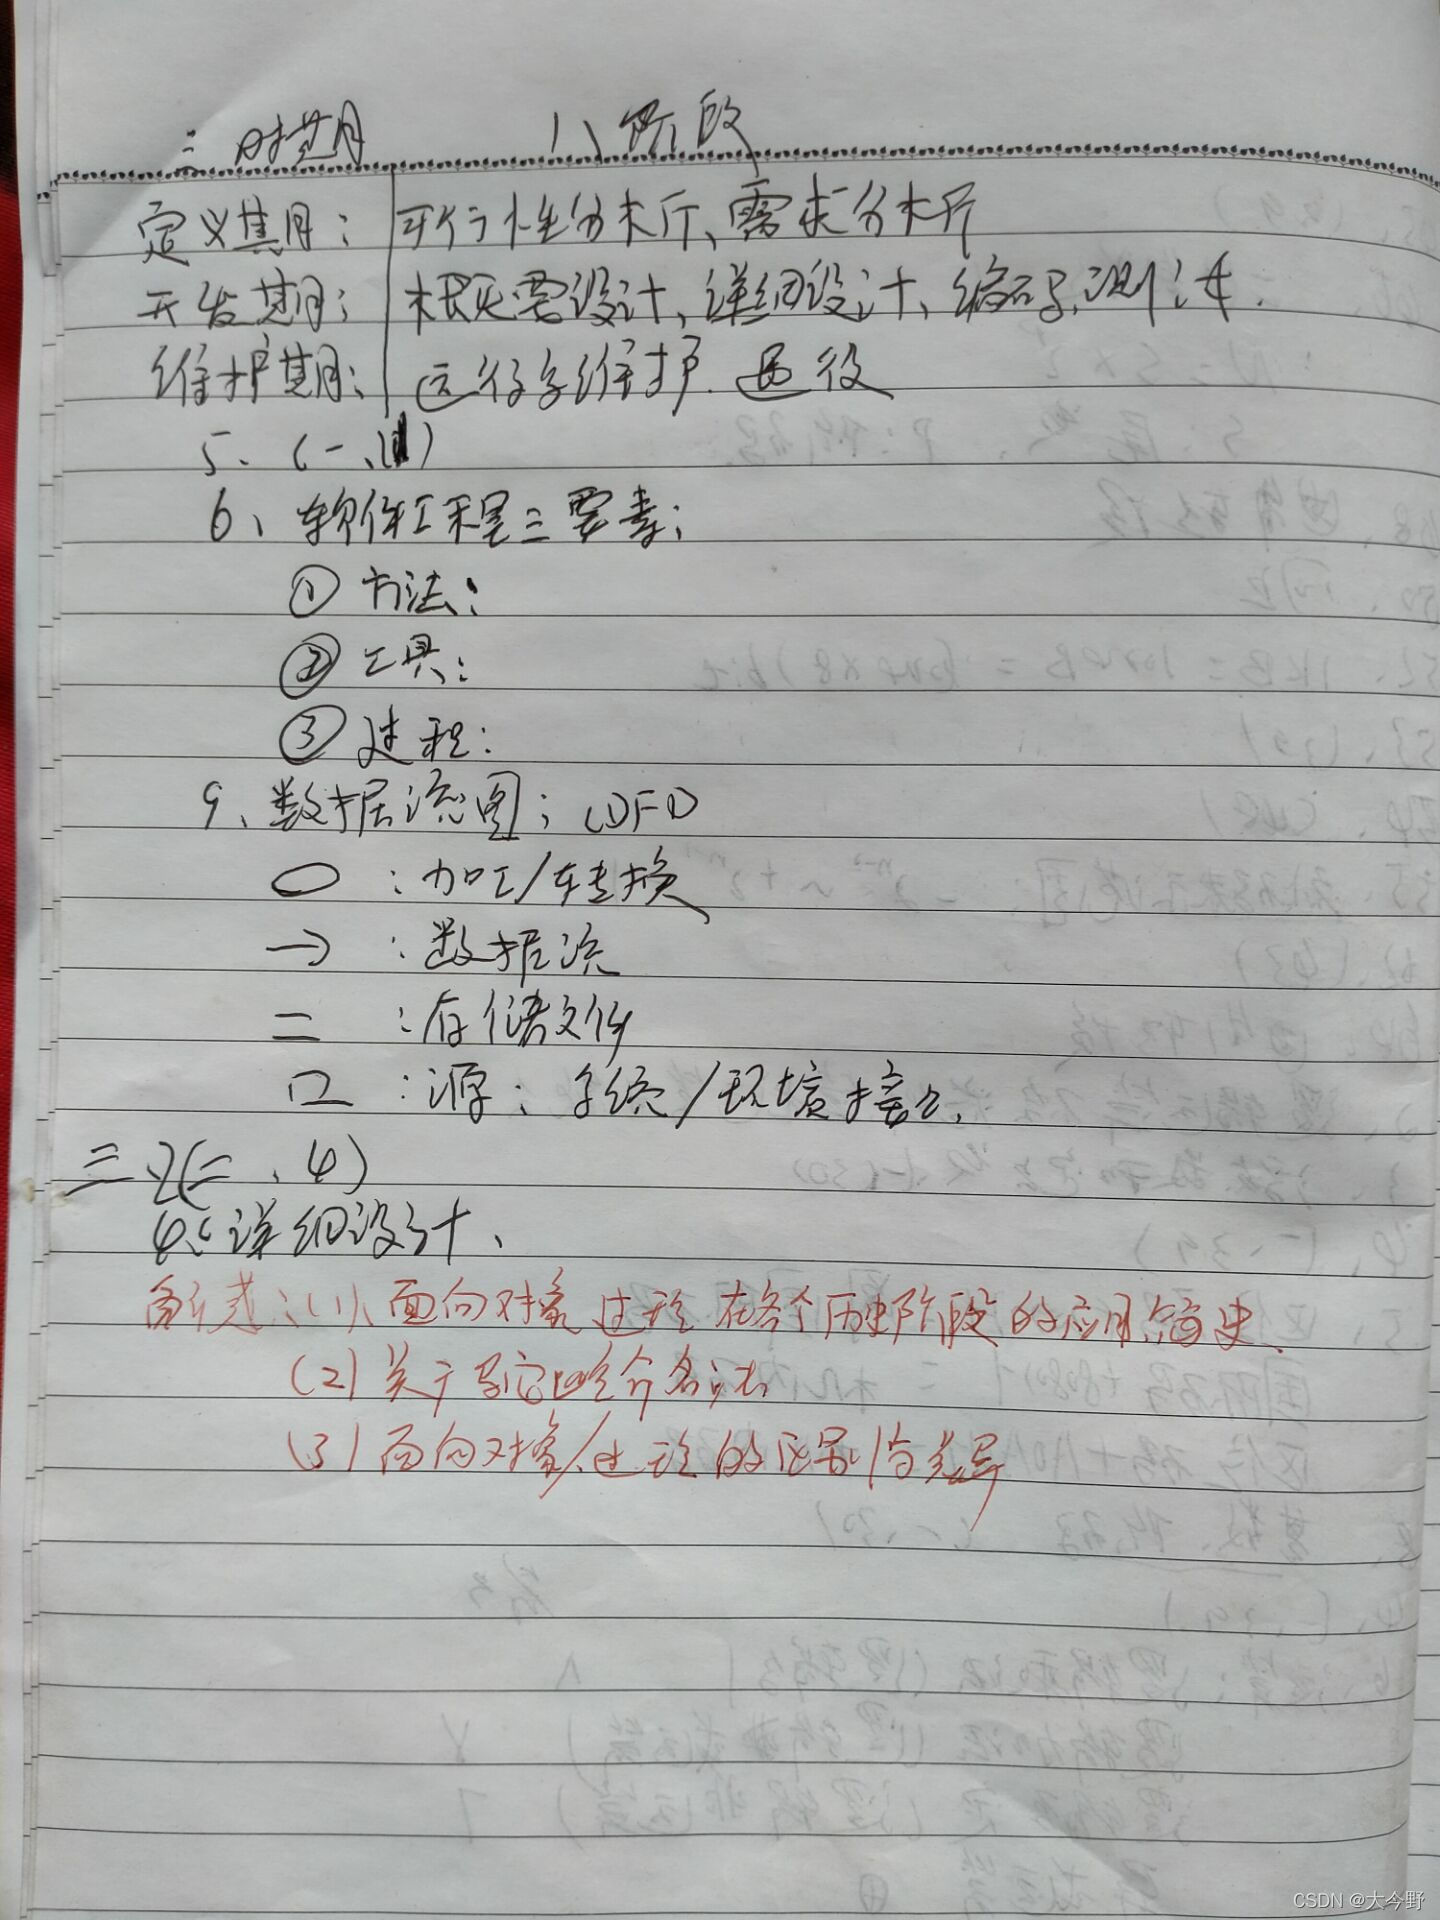 三时期 八阶段
定义期: 可行性分析、需求分析
开发期: 概要设计、详细设计、编码、测试.
维护期: 运行与维护、退役
5、(一、1)
6、软件工程三要素:
① 方法:
② 工具:
③ 过程:
9、数据流图: DFD
○ : 加工/转换
→ : 数据流
= : 存储文件
□ : 源: 系统/环境接口.
三、2(二、4)
4、详细设计、
(1)、面向对象、过程在各个历史阶段的应用简史.
(2) 关于
(3) 面向对象/过程的区别与差异
CSDN @大今野